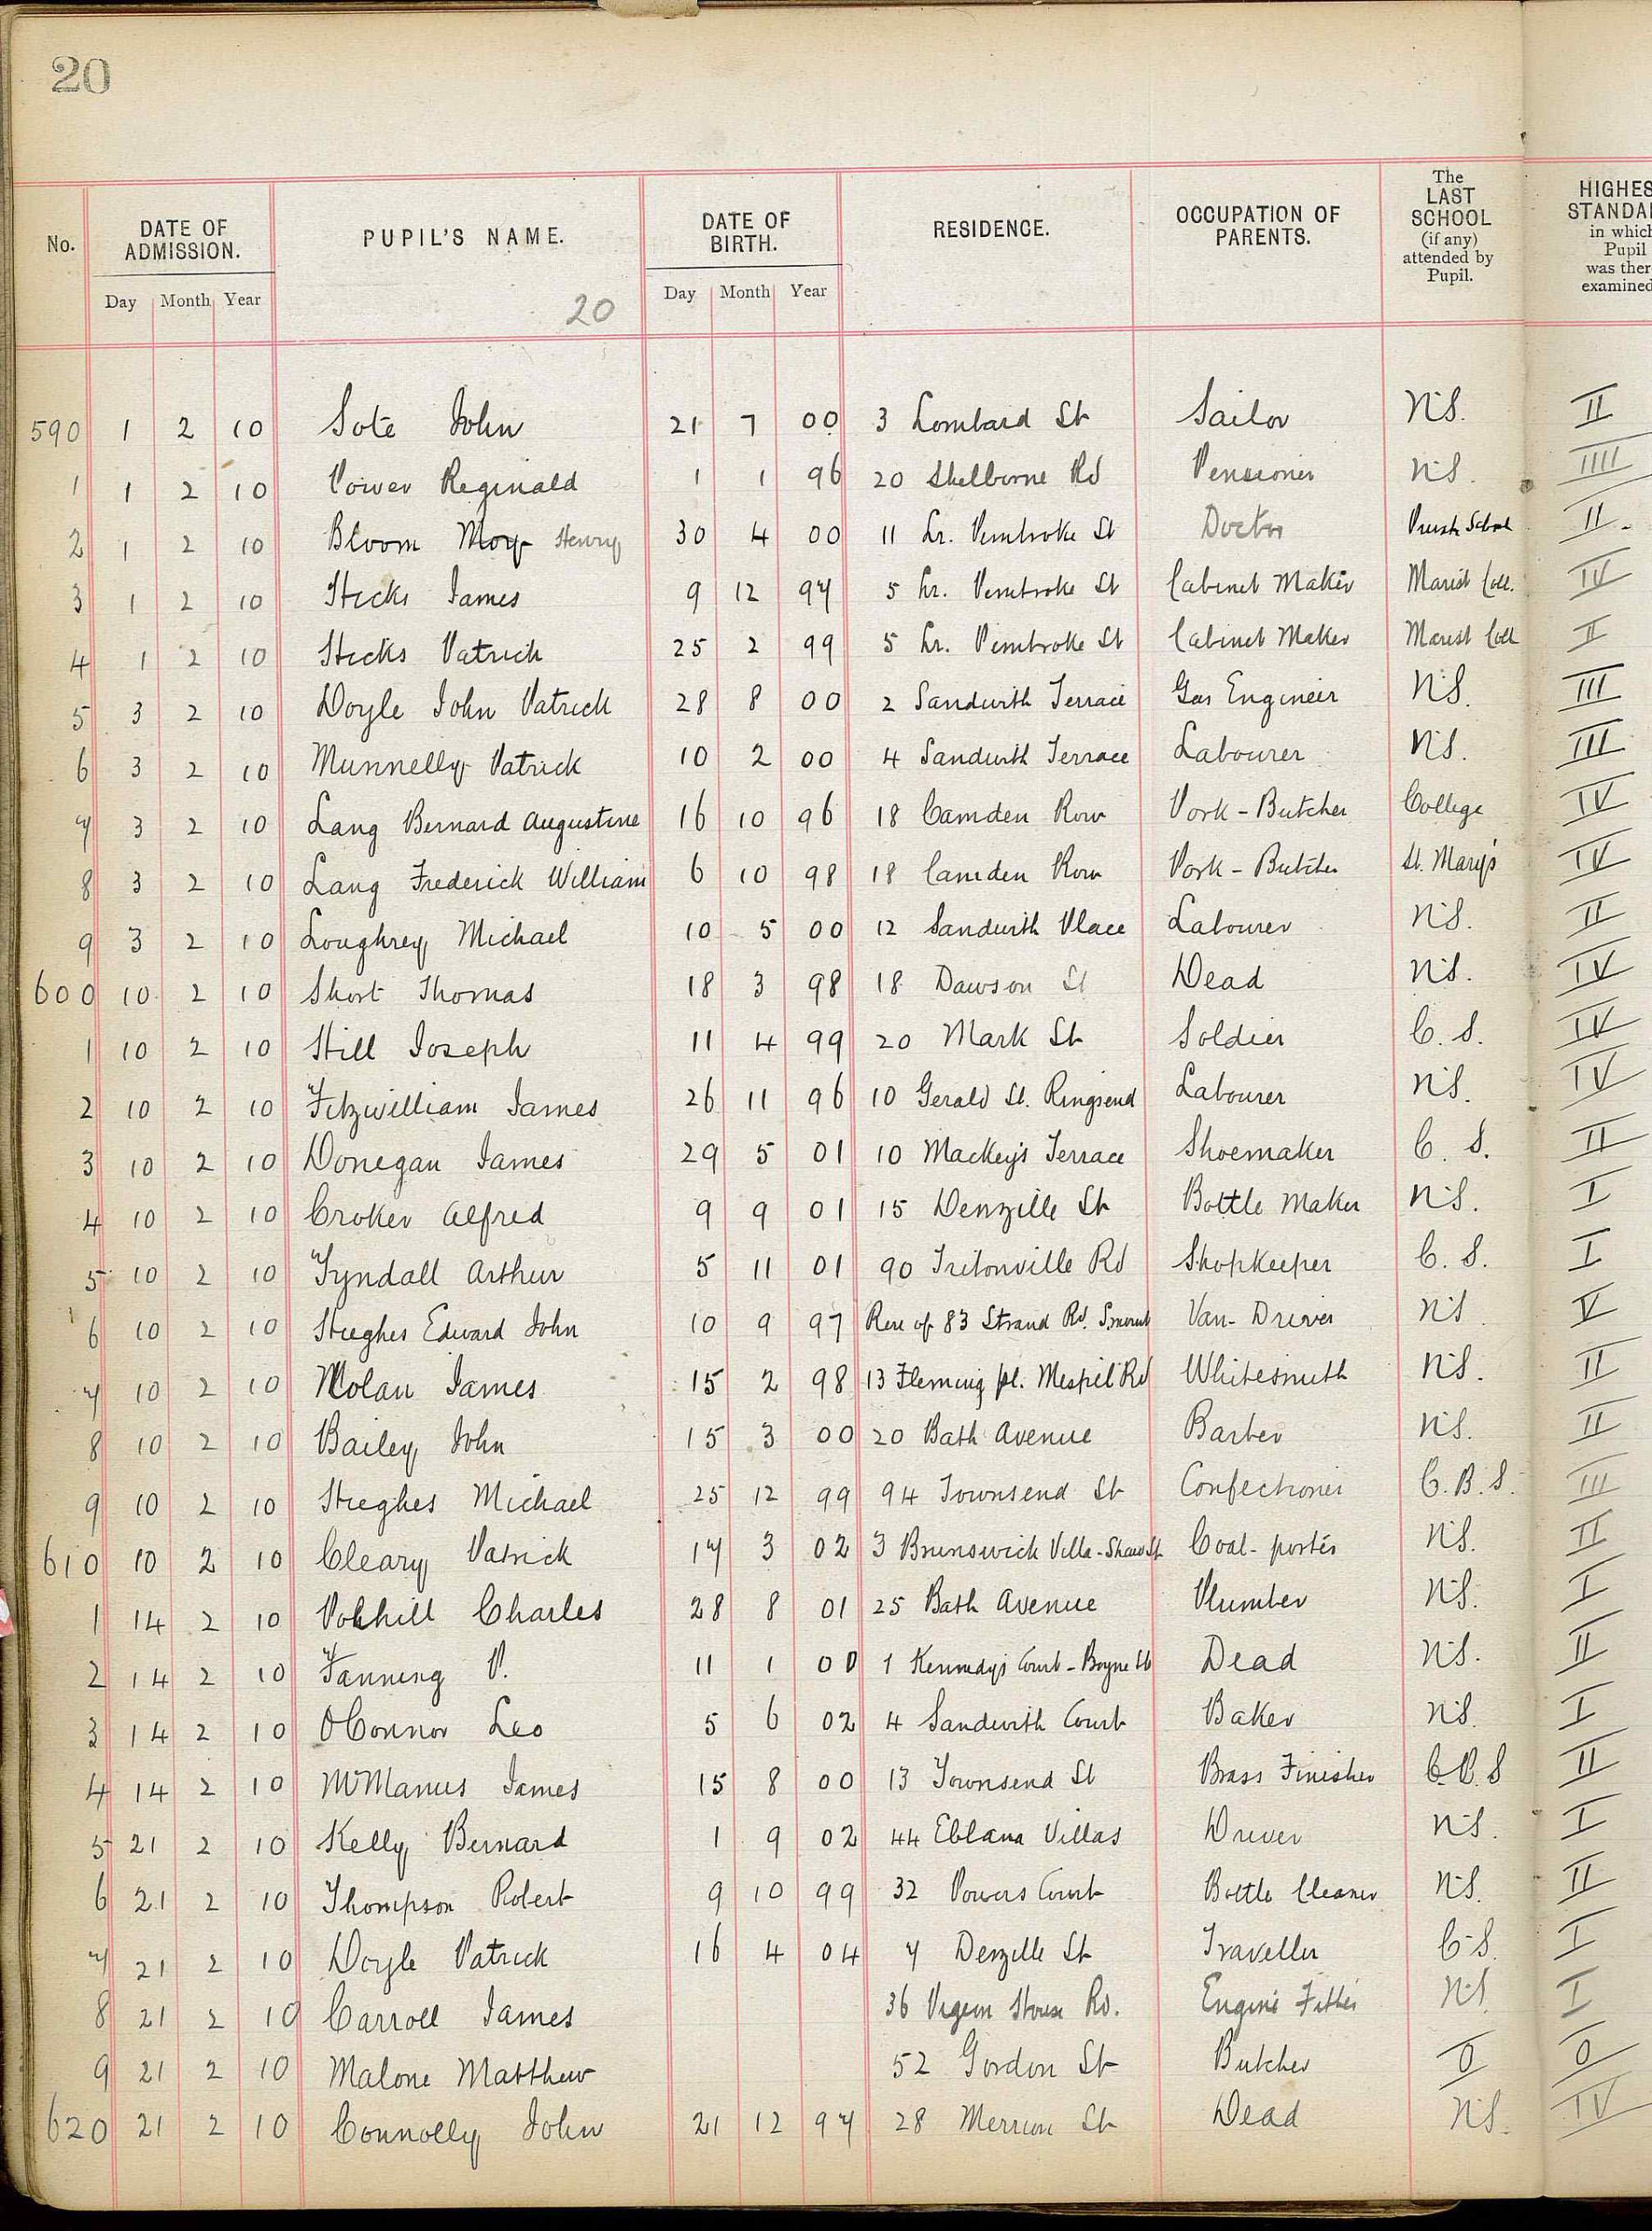 20
No. DATE OF ADMISSION. PUPIL'S NAME. DATE OF BIRTH. RESIDENCE. OCCUPATION OF PARENTS. The LAST SCHOOL (if any) attended by Pupil. HIGHES STANDA in which Pupil was ther examined
Day Month Year 20 Day Month Year
590 1 2 10 Sote John 21 7 00 3 Lombard St Sailor N.S. II
1 1 2 10 Power Reginald 1 1 96 20 Shelborne Rd Pensioner N.S. IIII
2 1 2 10 Bloom Moy Henry 30 4 00 11 Lr. Pembroke St Doctor School II
3 1 2 10 Hicks James 9 12 97 5 Lr. Pembroke St Cabinet Maker Marist Coll. IV
4 1 2 10 Hicks Patrick 25 2 99 5 Lr. Pembroke St Cabinet Maker Marist Coll II
5 3 2 10 Doyle John Patrick 28 8 00 2 Sandwith Terrace Gas Engineer N.S. III
6 3 2 10 Munnelly Patrick 10 2 00 4 Sandwith Terrace Labourer N.S. III
7 3 2 10 Lang Bernard Augustine 16 10 96 18 Camden Row Pork-Butcher College IV
8 3 2 10 Lang Frederick William 6 10 98 18 Camden Row Pork-Butcher St. Mary's IV
9 3 2 10 Loughrey Michael 10 5 00 12 Sandwith Place Labourer N.S. II
600 10 2 10 Short Thomas 18 3 98 18 Dawson St Dead N.S. IV
1 10 2 10 Hill Joseph 11 4 99 20 Mark St Soldier C.S. IV
2 10 2 10 Fitzwilliam James 26 11 96 10 Gerald St. Ringsend Labourer N.S. IV
3 10 2 10 Donegan James 29 5 01 10 Mackey's Terrace Shoemaker C.S. II
4 10 2 10 Croker Alfred 9 9 01 15 Denzille St Bottle Maker N.S. I
5 10 2 10 Tyndall Arthur 5 11 01 90 Tritonville Rd Shopkeeper C.S. I
6 10 2 10 Hughes Edward John 10 9 97 Rere of 83 Strand Rd. Van-Driver N.S. V
7 10 2 10 Nolan James 15 2 98 13 Fleming pl. Mespil Rd Whitesmith N.S. II
8 10 2 10 Bailey John 15 3 00 20 Bath Avenue Barber N.S. II
9 10 2 10 Hughes Michael 25 12 99 94 Townsend St Confectioner C.B.S. III
610 10 2 10 Cleary Patrick 17 3 02 3 Brunswick Villa-Shaw St Coal-porter N.S. II
1 14 2 10 Polhill Charles 28 8 01 25 Bath Avenue Plumber N.S. I
2 14 2 10 Fanning P. 11 1 00 1 Kennedy's Court-Boyne St Dead N.S. II
3 14 2 10 O'Connor Leo 5 6 02 4 Sandwith Court Baker N.S. I
4 14 2 10 McManus James 15 8 00 13 Townsend St Brass Finisher C.B.S II
5 21 2 10 Kelly Bernard 1 9 02 44 Eblana Villas Driver N.S. I
6 21 2 10 Thompson Robert 9 10 99 32 Powers Court Bottle Cleaner N.S. II
7 21 2 10 Doyle Patrick 16 4 04 7 Denzille St Traveller C.S. I
8 21 2 10 Carroll James 36 Pigeon House Rd. Engine Fitter N.S. I
9 21 2 10 Malone Matthew 52 Gordon St Butcher 0 0
620 21 2 10 Connolly John 21 12 97 28 Merrion St Dead N.S. IV